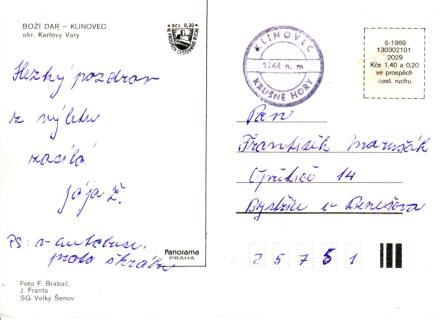 BOŽÍ DAR – KLÍNOVEC
okr. Karlovy Vary
Kčs 0,20
Hezký pozdrav
z výletu
zasílá
Jája Ž.
PS: v autobuse,
proto škrábu
Panorama
PRAHA
Foto F. Brabač,
J. Franta
SG Velký Šenov
KLÍNOVEC
1244 n. m
KRUŠNÉ HORY
6-1969
130302101
2029
Kčs 1,40 a 0,20
ve prospěch
cest. ruchu
Pan
František
14
Bystřice u Benešova
2 5 7 5 1